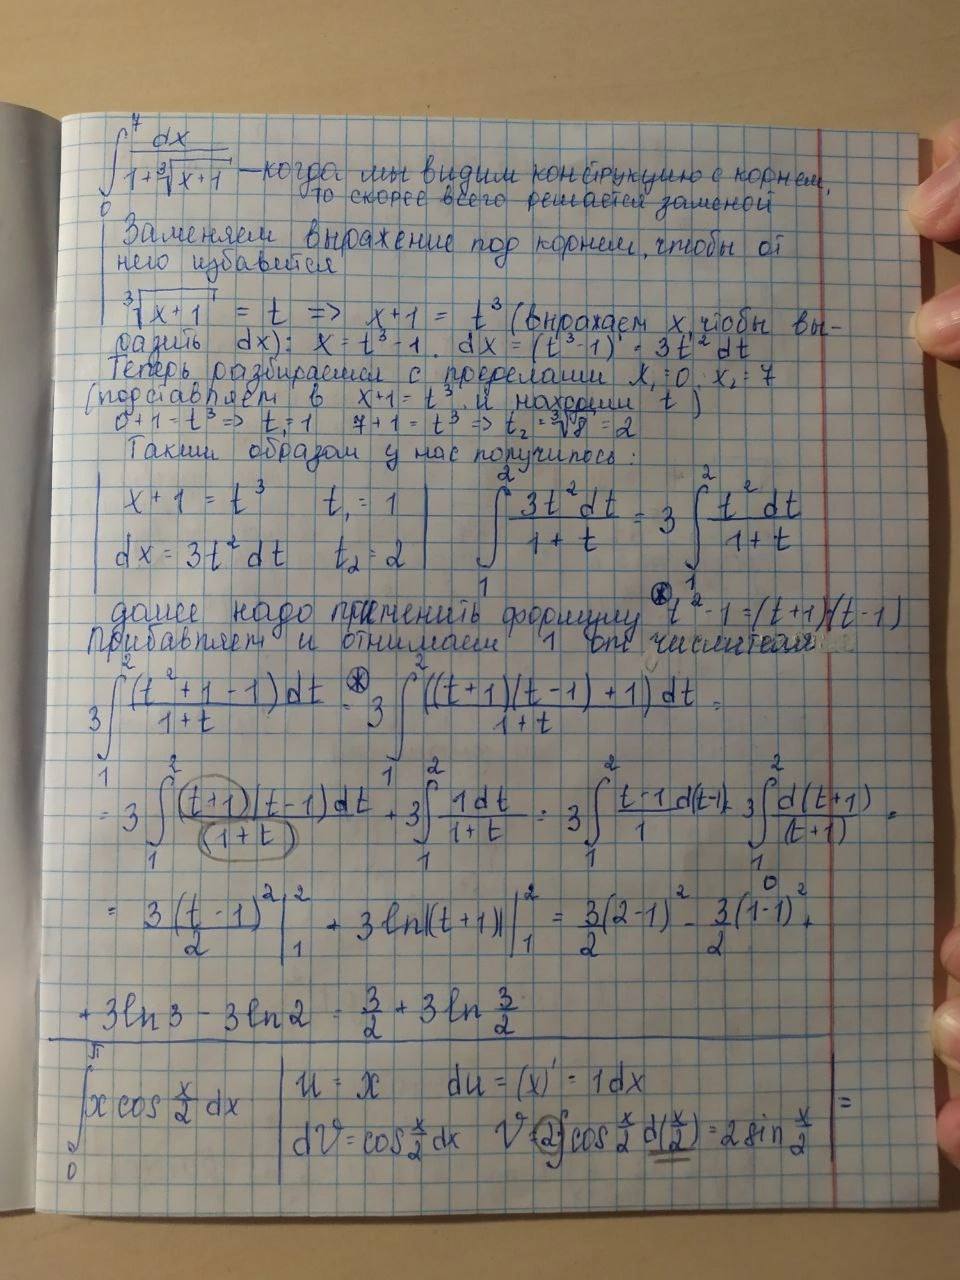 ∫₀⁷ dx / (1+∛(x+1)) — когда мы видим конструкцию с корнем,
то скорее всего решается заменой
Заменяем выражение под корнем, чтобы от
него избавится
∛(x+1) = t => x+1 = t³ (выражаем x, чтобы вы-
разить dx): x = t³-1. dx = (t³-1)' = 3t² dt
Теперь разбираемся с пределами x₁=0. x₂=7
(подставляем в x+1=t³ и находим t)
0+1=t³ => t₁=1 7+1=t³ => t₂=∛8=2
Таким образом у нас получилось:
| x+1 = t³ t₁ = 1 | ∫₁² 3t² dt / (1+t) = 3 ∫₁² t² dt / (1+t)
| dx = 3t² dt t₂ = 2 |
далее надо применить формулу * t²-1=(t+1)(t-1)
Прибавляем и отнимаем 1 от числителя
3∫₁² (t²+1-1)dt / (1+t) =* 3∫₁² ((t+1)(t-1)+1)dt / (1+t) =
= 3∫₁² (t+1)(t-1)dt / (1+t) + 3∫₁² 1dt / (1+t) = 3∫₁² (t-1)/1 d(t-1) 3∫₁² d(t+1) / (t+1) =
= 3(t-1)²/2 |₁² + 3ln|(t+1)| |₁² = 3/2 (2-1)² - 3/2 (1-1)² 0 +
+ 3ln3 - 3ln2 = 3/2 + 3ln 3/2
∫₀^π x cos x/2 dx | u = x du = (x)' = 1dx | =
dV = cos x/2 dx V = 2∫cos x/2 d(x/2) = 2 sin x/2